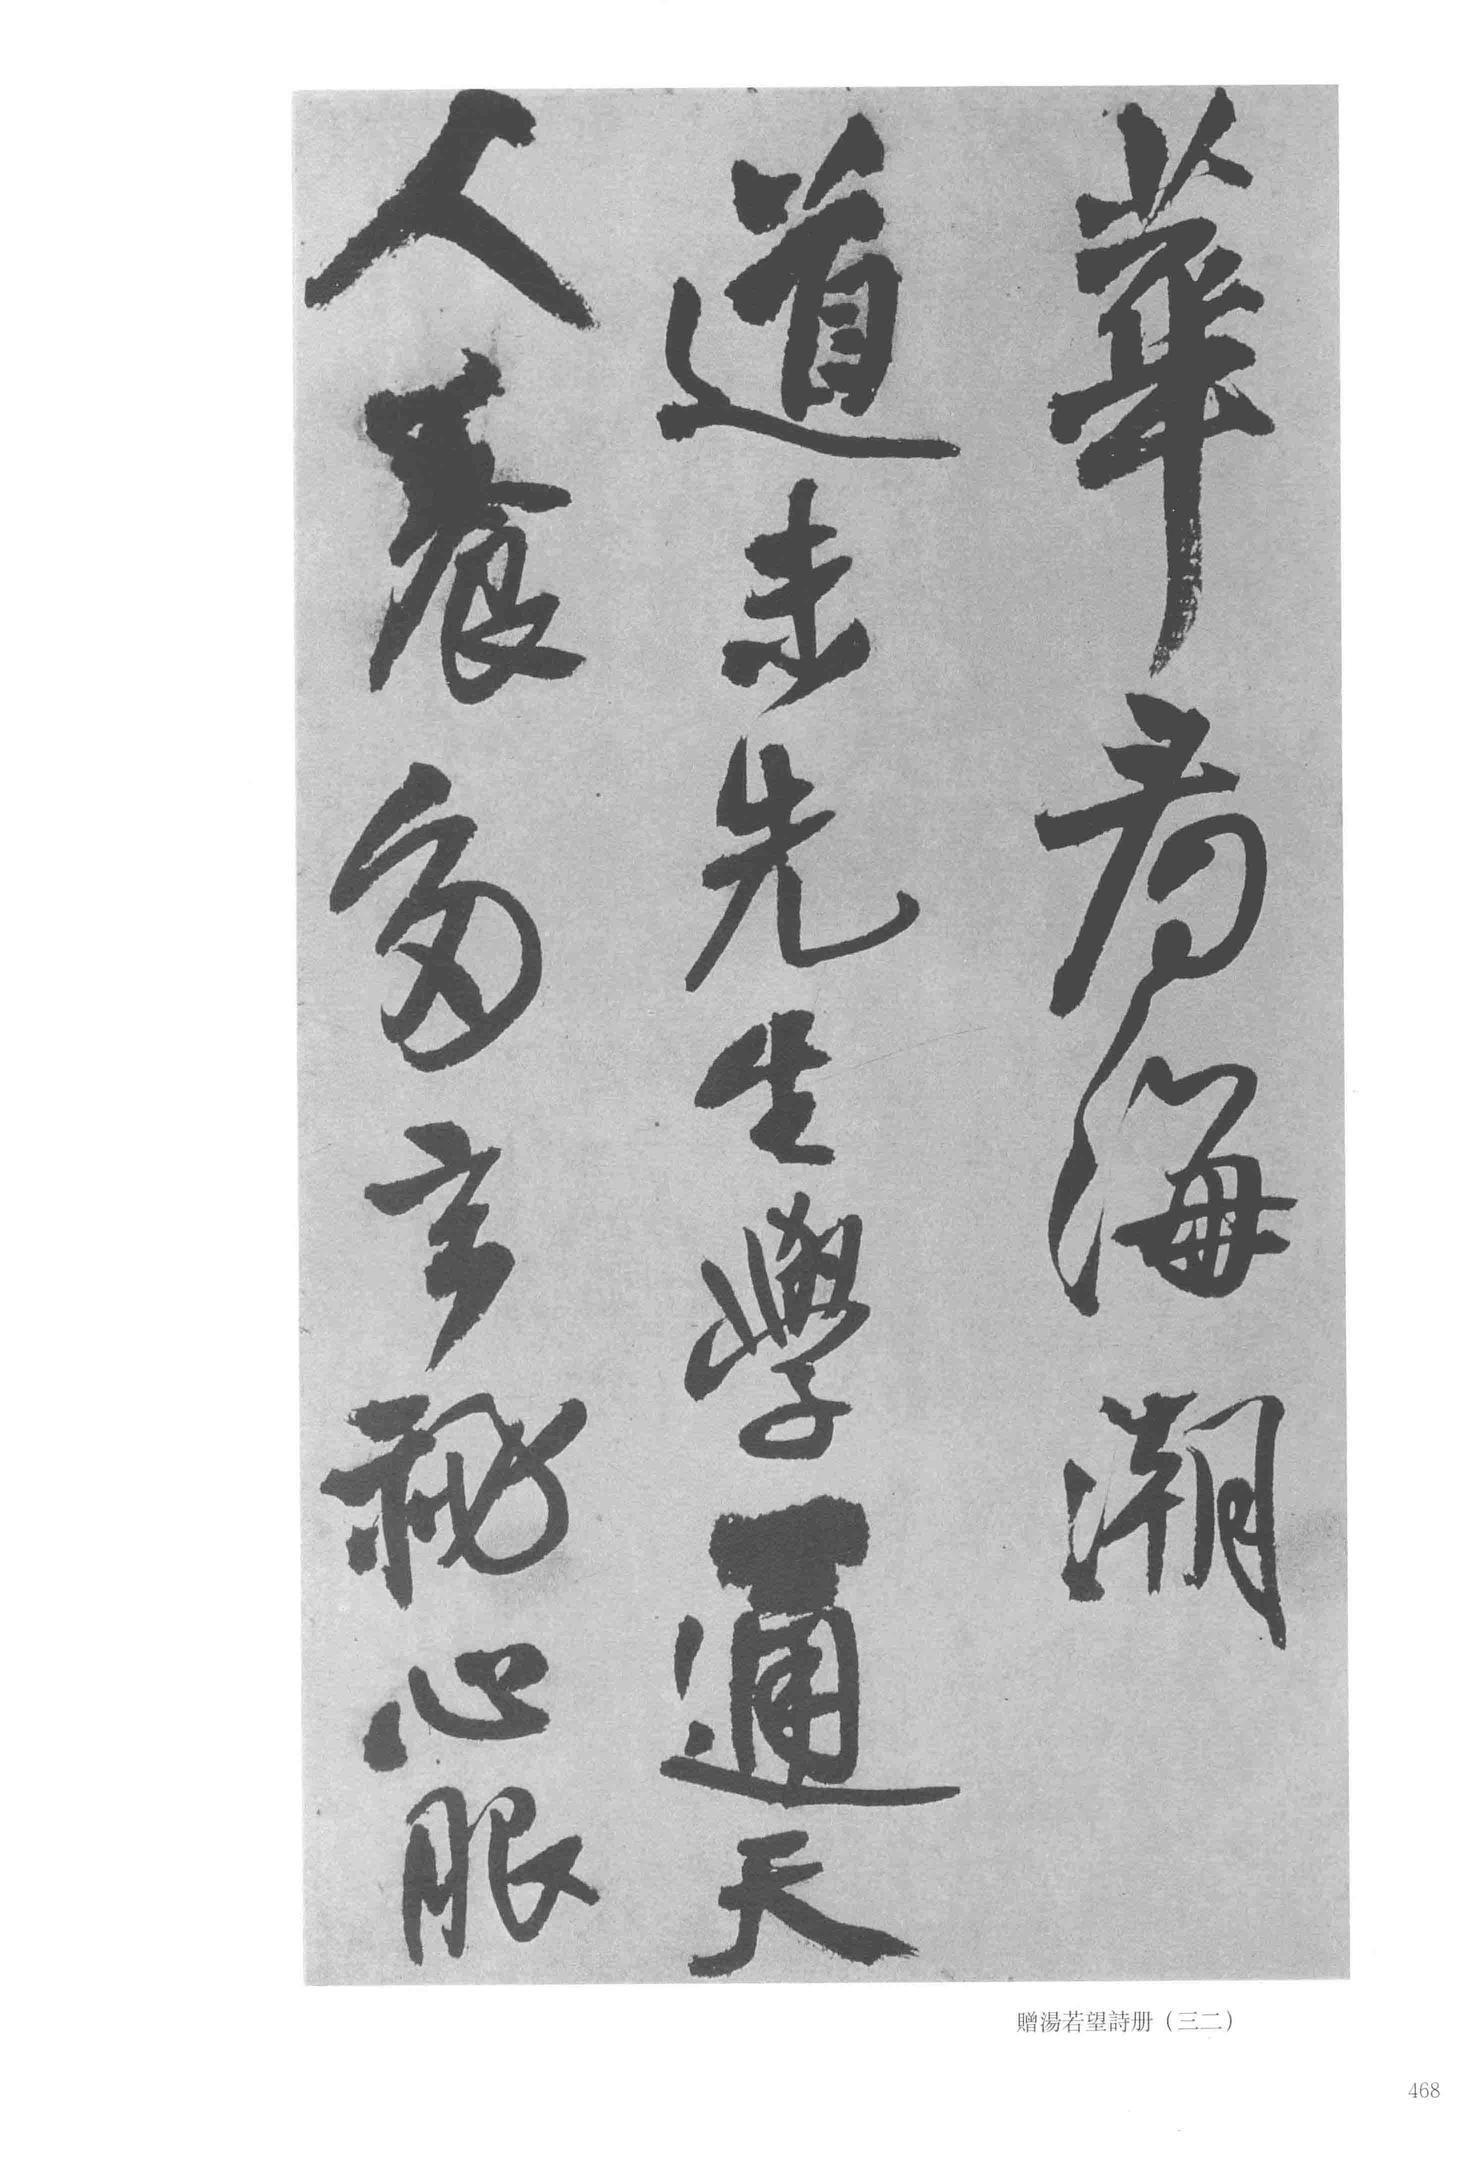 華看海潮
道未先生學通天
人養多玄秘心服
贈湯若望詩册（三二）
468